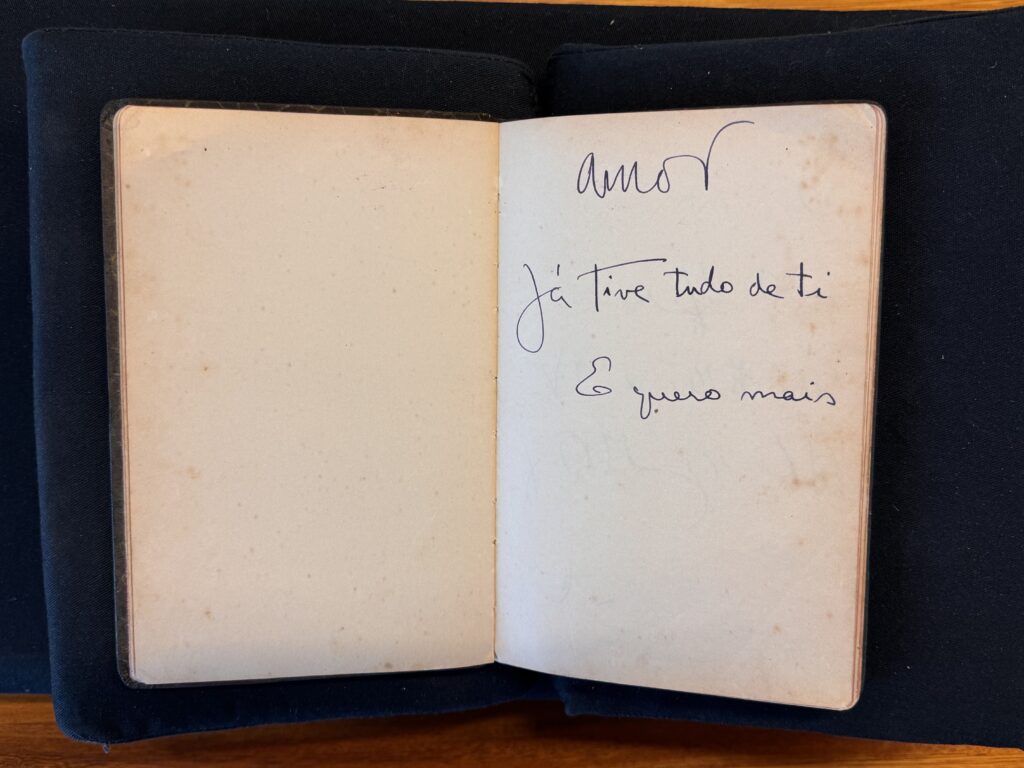 amor
Já tive tudo de ti
E quero mais